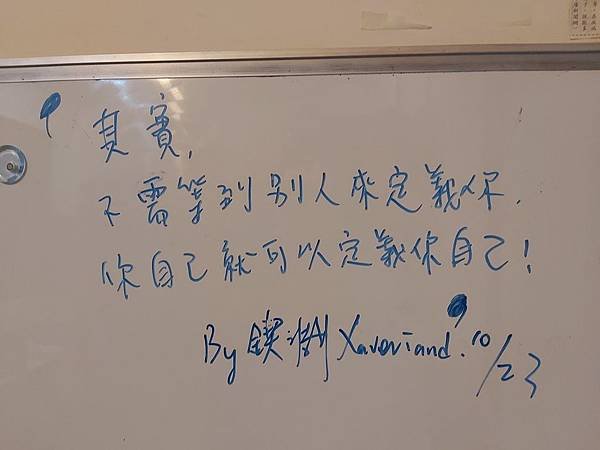 其實,
不需等到別人來定義你.
你自己就可以定義你自己!
By Xaveriand. 10/23